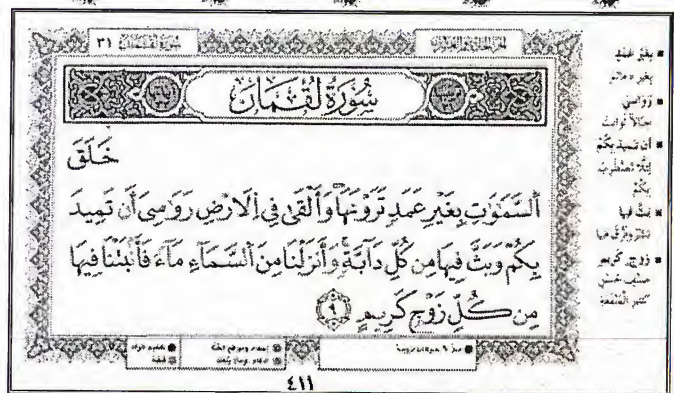 سورة لقمان ٣١
سُورَةُ لُقْمَانَ
خَلَقَ
ٱلسَّمَٰوَٰتِ بِغَيْرِ عَمَدٍ تَرَوْنَهَا وَأَلْقَىٰ فِي ٱلْأَرْضِ رَوَٰسِيَ أَن تَمِيدَ
بِكُمْ وَبَثَّ فِيهَا مِن كُلِّ دَآبَّةٍ وَأَنزَلْنَا مِنَ ٱلسَّمَآءِ مَآءً فَأَنۢبَتْنَا فِيهَا
مِن كُلِّ زَوْجٍ كَرِيمٍ ٩
■ بِغَيْرِ عَمَدٍ
بغير دعائم
■ رَوَاسِيَ
جبالاً ثوابت
■ أن تَمِيدَ بِكُمْ
لئلا تضطرب
بكم
■ بَثَّ فيها
■ زَوْجٍ كريم
صنف حسن
كثير المنفعة
٤١١